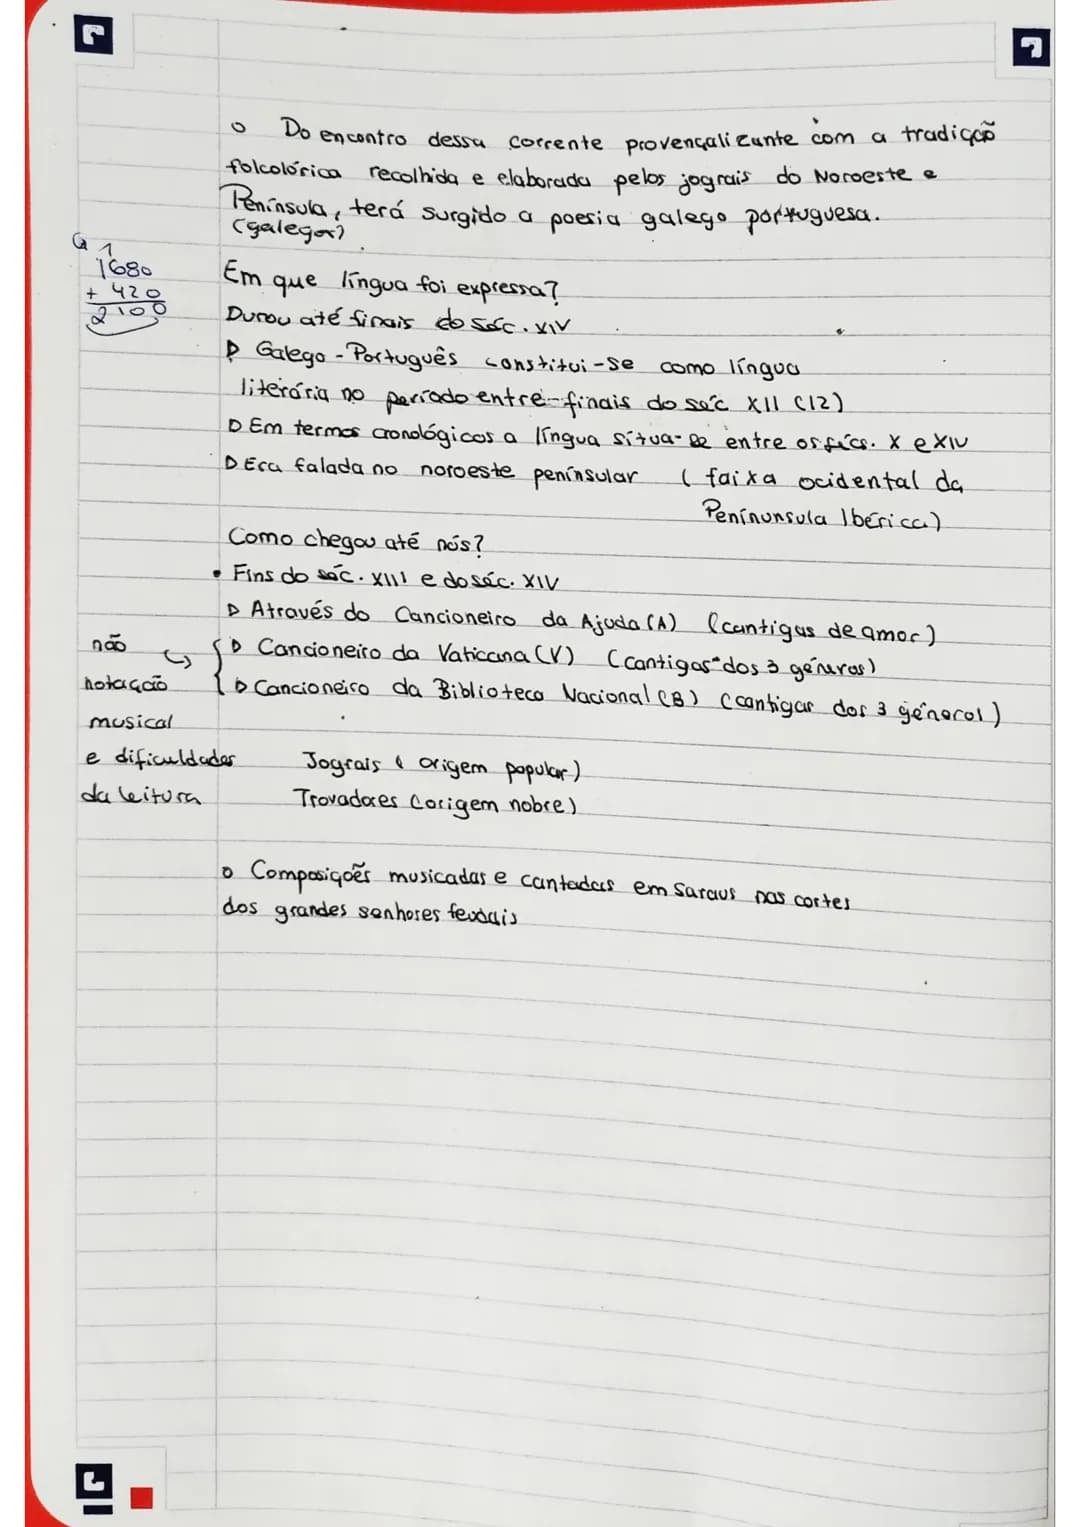 o Do encontro dessa corrente provençalizante com a tradição
folcolórica recolhida e elaborada pelos jograis do Noroeste e
Península, terá surgido a poesia galego portuguesa.
(galegos)
1
1680
+ 420
2100
Em que língua foi expressa?
Durou até finais do séc. XIV
D Galego-Português constitui-se como língua
literária no período entre-finais do séc XII (12)
D Em termos cronológicos a língua situa-se entre os sécs. X e XIV
D Era falada no noroeste peninsular (faixa ocidental da
Penínunsula Ibérica)
Como chegou até nós?
• Fins do séc. XIII e do séc. XIV
D Através do Cancioneiro da Ajuda (A) (cantigas de amor)
D Cancioneiro da Vaticana (V) (cantigas dos 3 géneros)
D Cancioneiro da Biblioteca Nacional (B) (cantigas dos 3 géneros)
não
notação
musical
e dificuldades
da leitura
Jograis (origem popular)
Trovadores (origem nobre)
o Composições musicadas e cantadas em saraus nas cortes
dos grandes senhores feudais